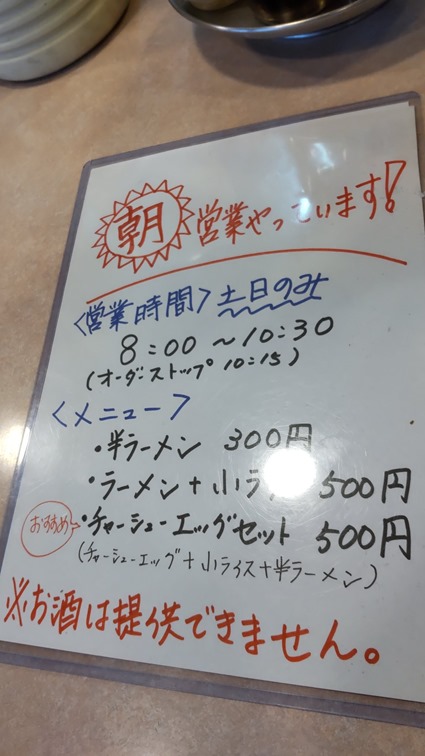 朝 営業やっています!
<営業時間> 土日のみ
8:00〜10:30
(オーダーストップ 10:15)
<メニュー>
・半ラーメン 300円
・ラーメン+小ラ 500円
おすすめ→・チャーシューエッグセット 500円
(チャーシューエッグ+小ライス+半ラーメン)
※お酒は提供できません。